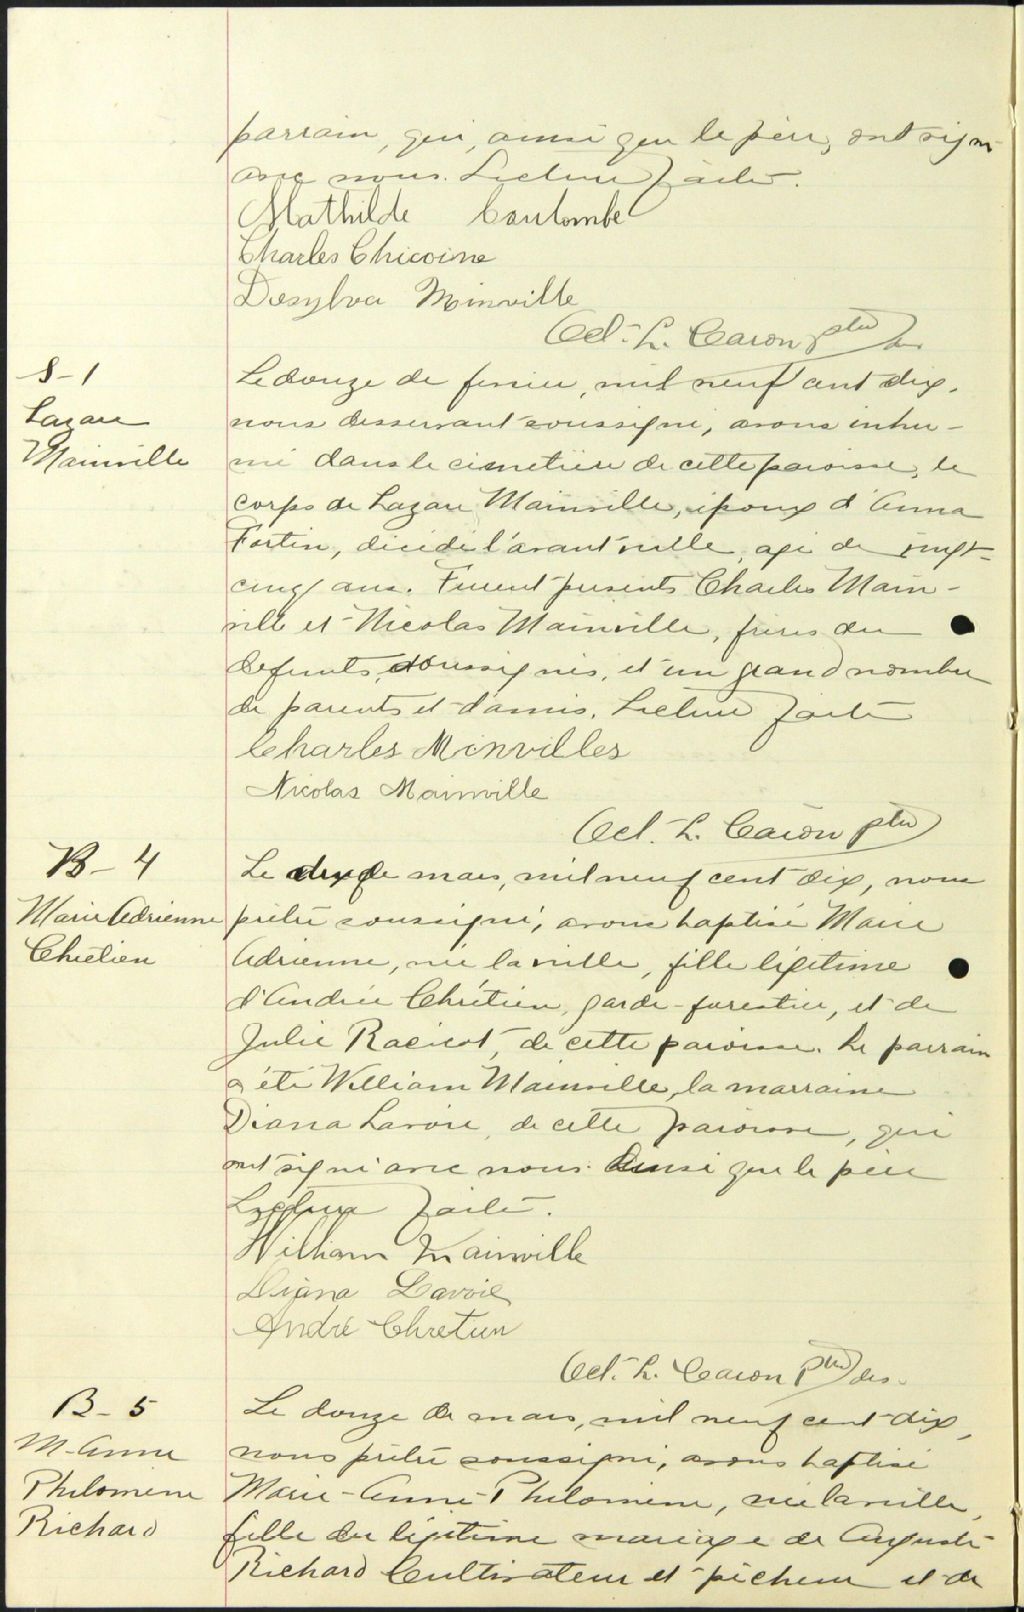 parrain, qui, ainsi que le père, ont signé
avec nous. Lecture faite.
Mathilde Coulombe
Charles Chicoine
Desylva Minville
Oct. L. Caron ptre des
S-1
Lazare
Mainville
Le douze de fevrier, mil neuf cent dix,
nous desservant soussigné, avons inhu-
mé dans le cimetière de cette paroisse, le
corps de Lazare Mainville, époux d'Anna
Fortin, décédé l'avant veille, agé de vingt-
cinq ans. Furent présents Charles Main-
ville et Nicolas Mainville, frères du
defunts, soussignés, et un grand nombre
de parents et d'amis. Lecture faite
Charles Minvilles
Nicolas Mainville
Oct. L. Caron ptre
B-4
Marie Adrienne
Chrétien
Le de mars, mil neuf cent dix, nous
prêtre soussigné, avons baptisé Marie
Adrienne, née la veille, fille légitime
d'André Chrétien, garde-forestier, et de
Julie Racicot, de cette paroisse. Le parrain
a été William Mainville, la marraine
Diana Lavoie, de cette paroisse, qui
ont signé avec nous ainsi que le père
Lecture faite.
William Mainville
Diana Lavoie
André Chretien
Oct. L. Caron ptre des.
B-5
M-Anne
Philomène
Richard
Le douze de mars, mil neuf cent dix,
nous prêtre soussigné, avons baptisé
Marie-Anne-Philomène, née la veille,
fille du légitime mariage de Auguste
Richard Cultivateur et pêcheur et de